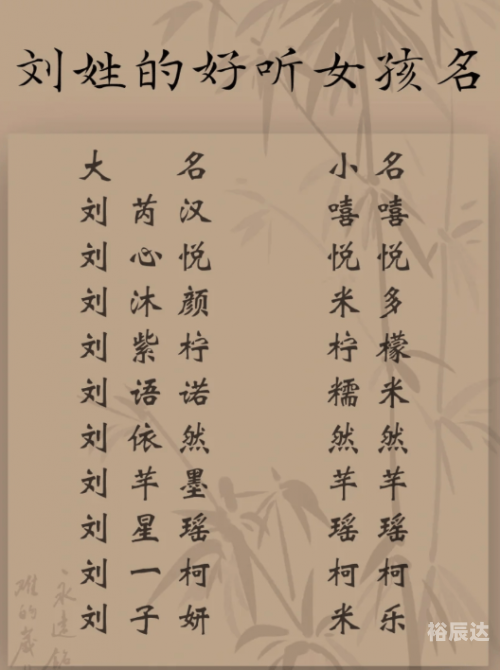 刘姓的好听女孩名
大名 小名
刘芮汉 嘻嘻
刘心悦 悦悦
刘沐颜 米多
刘紫柠 柠檬
刘语诺 糯米
刘依然 然然
刘芊墨 芊芊
刘星瑶 瑶瑶
刘一柯 柯柯
刘子妍 米乐
裕辰达